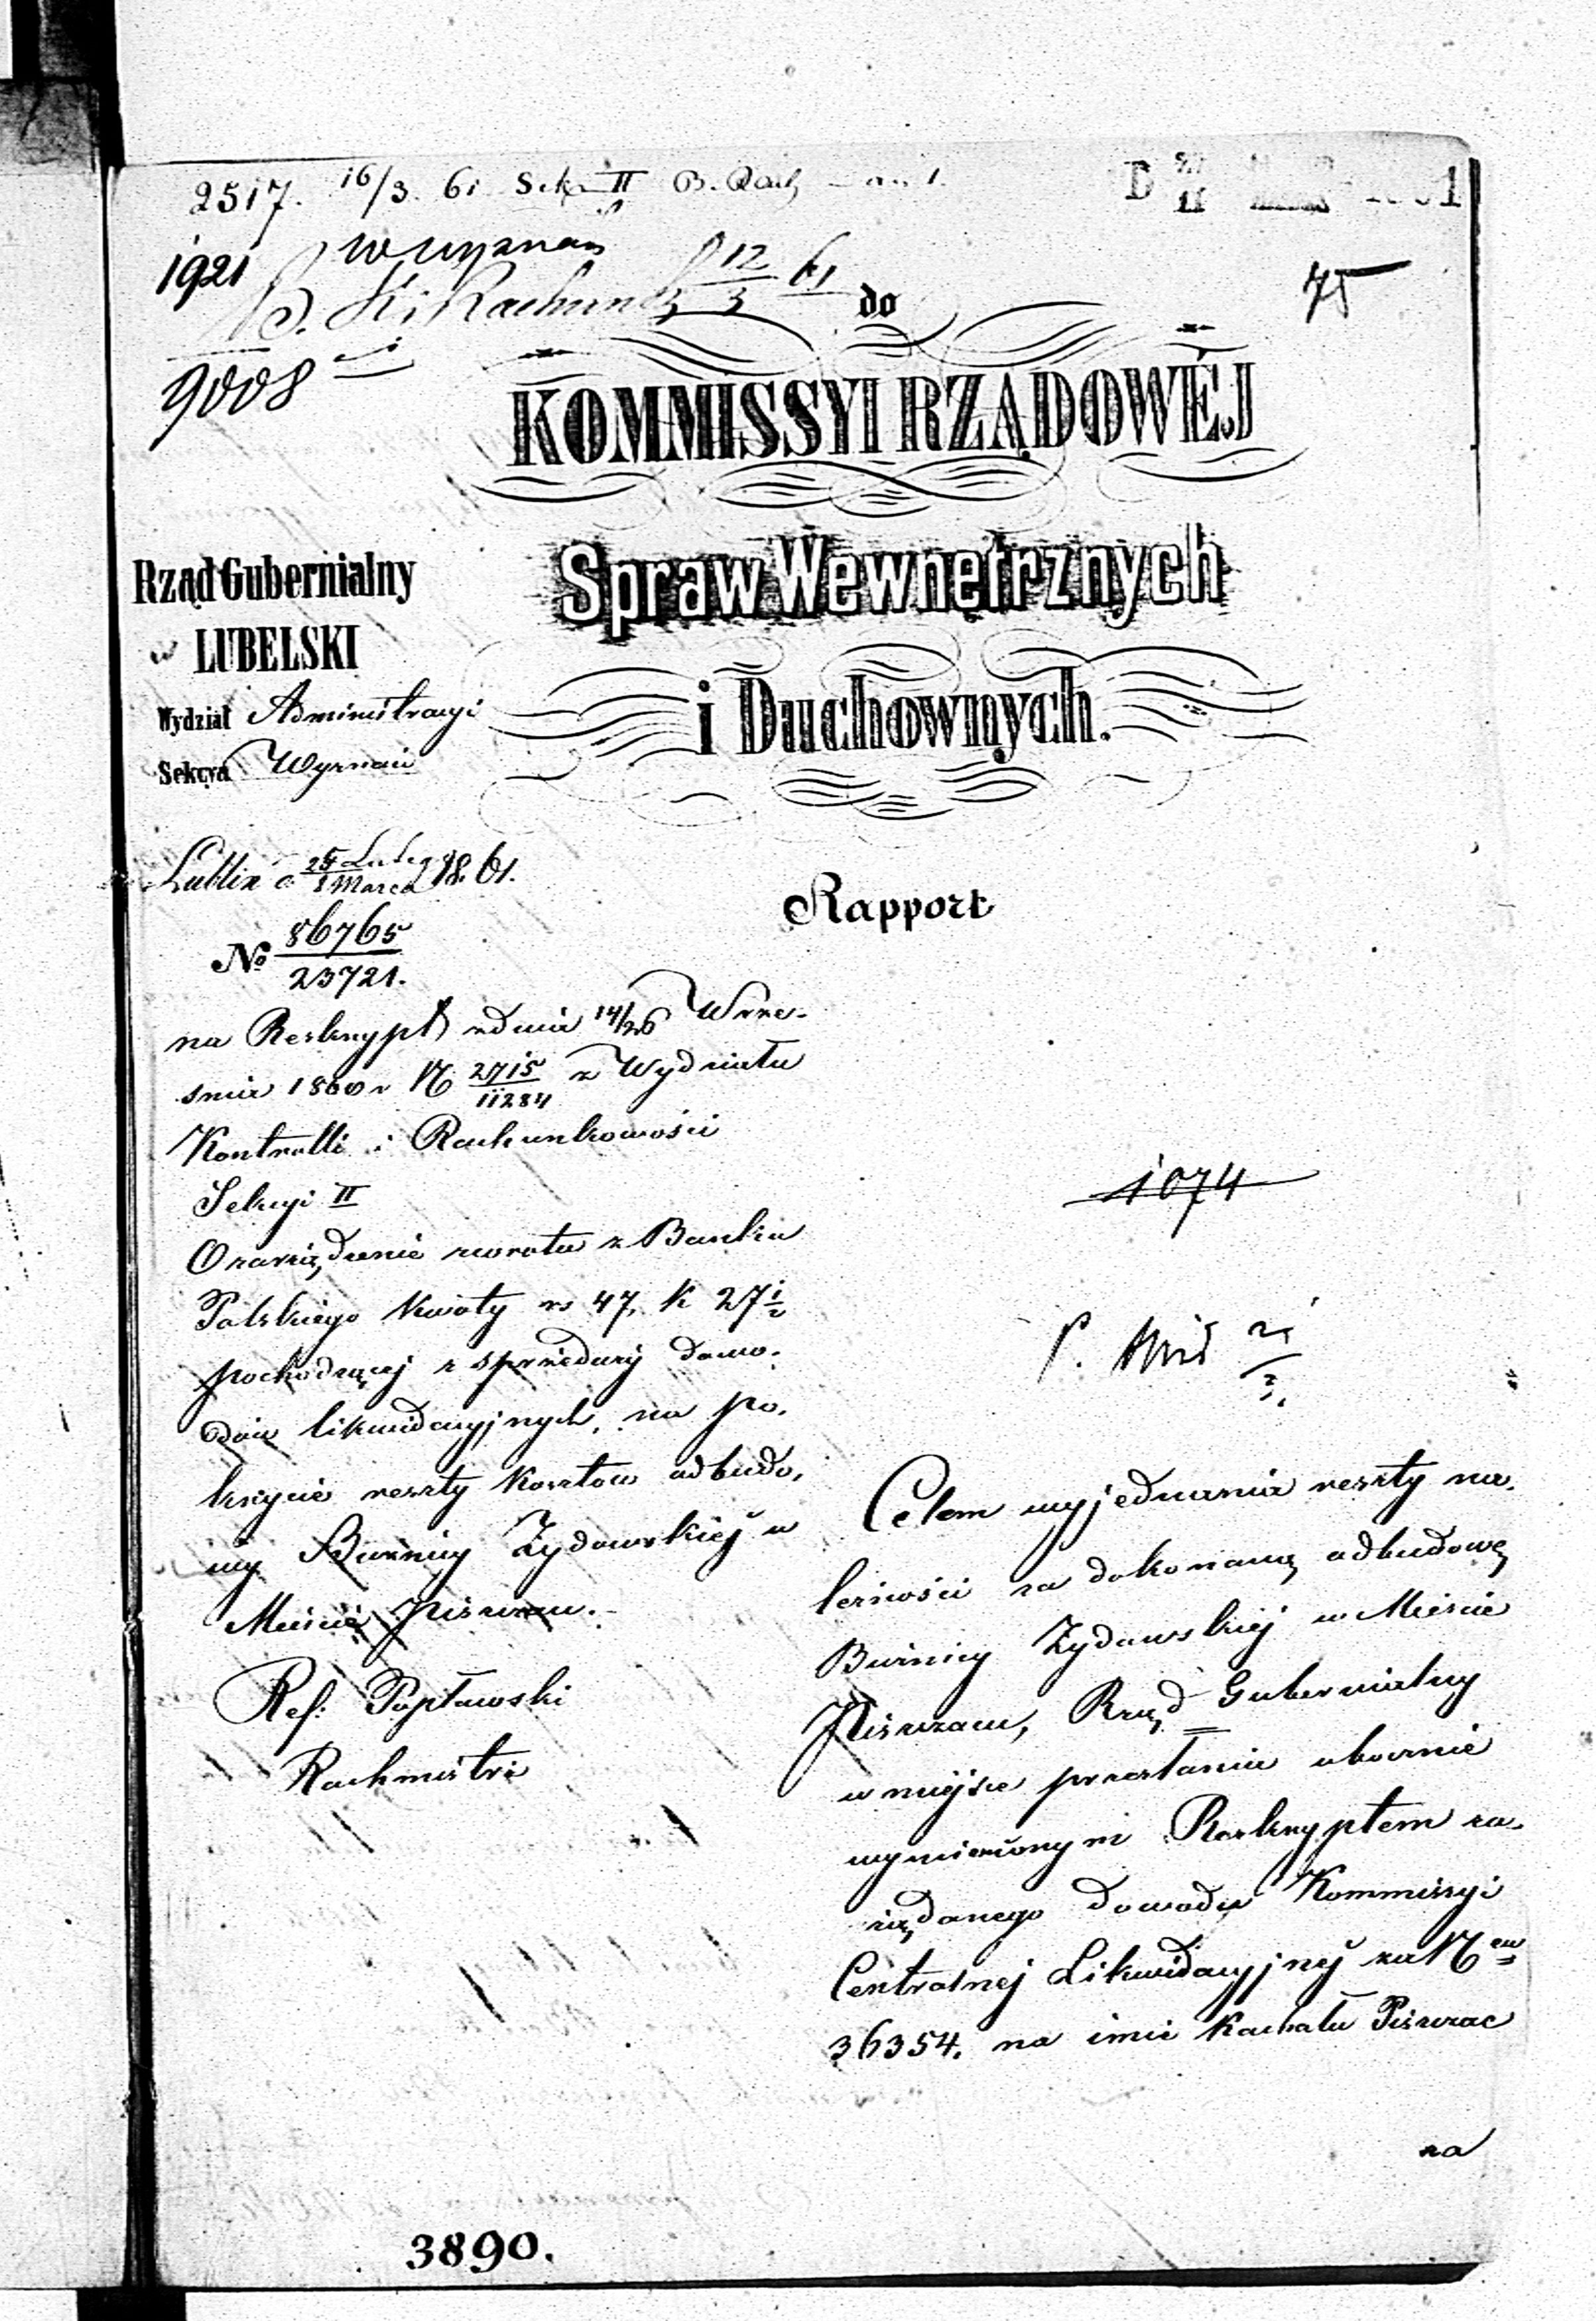 2517. 16/3. 61 Sek. II B. Rach
1921 W wyznań
W. K. i Rachunk 12/3 61
75
9008
do
KOMMISSYI RZĄDOWÉJ
Spraw Wewnętrznych
i Duchownych.
Rząd Gubernialny
LUBELSKI
Wydział Administracyi
Sekcya Wyznań
Lublin d. 25 Lutego/1 Marca 1861.
№ 86765/23721.
Rapport
na Reskrypt z dnia 14/26 Wrze-
śnia 1860 r N 2715/11284 z Wydziału
Kontrolli i Rachunkowości
Sekcyi II
O zarządzenie zwrotu z Banku
Polskiego kwoty rs 47. k 27 1/2
pochodzącej z sprzedaży dowo-
dów likwidacyjnych, na po-
krycie reszty kosztów odbudo-
wy Bużnicy Żydowskiéj w
Mieście Piszczacu.
Ref: Popławski
Rachmistrz
1074
21/3.
Celem wyjednania reszty na-
leżności za dokonaną odbudowę
Bużnicy Żydowskiej w Mieście
Piszczacu, Rząd Gubernialny
w miejsce przesłania obocznie
wymienionym Reskryptem za-
żądanego dowodu Kommissyi
Centralnej Likwidacyjnéj za N em
36354. na imie Kachału Piszczac
na
3890.